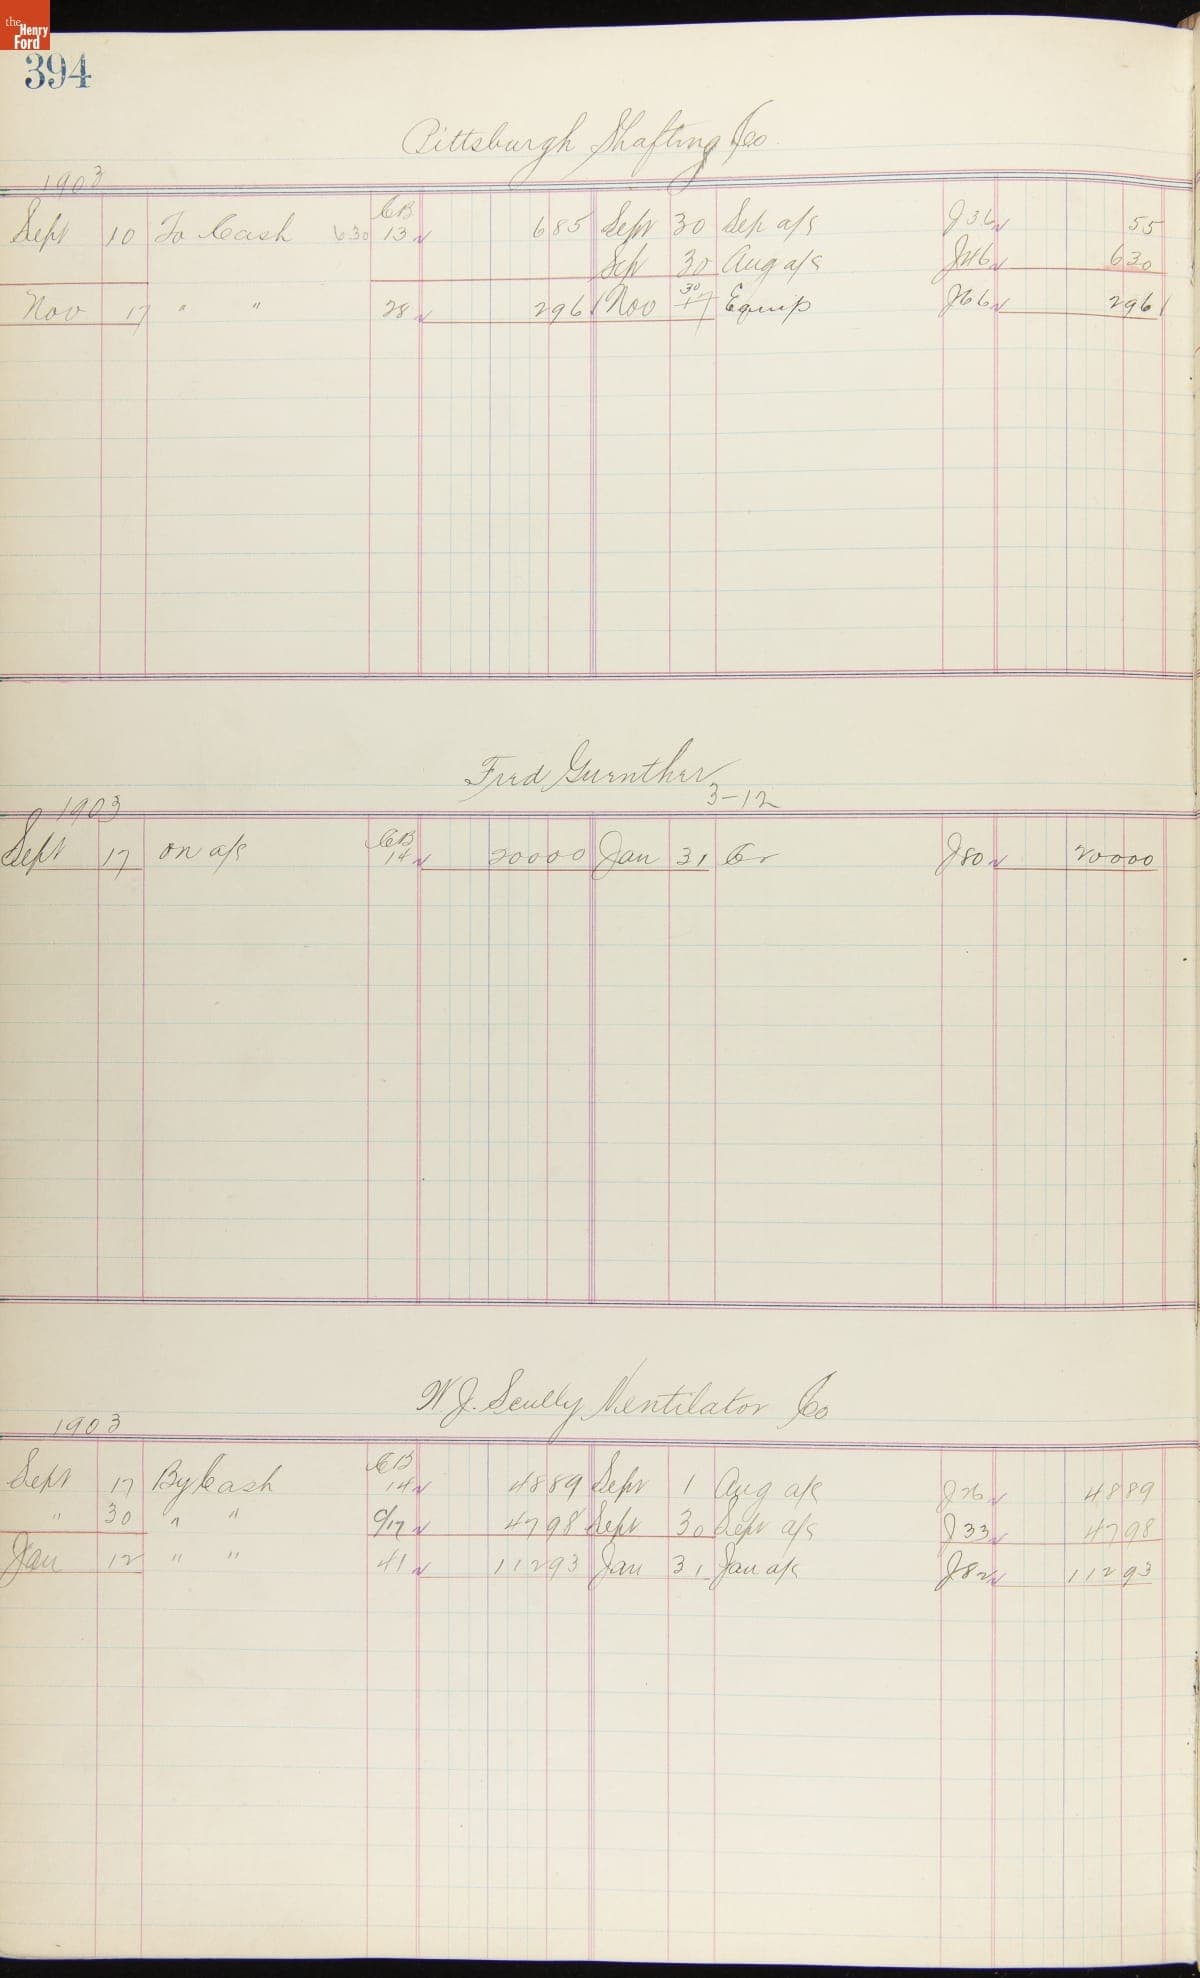 the Henry Ford
394
Pittsburgh Shafting Co
1903
CB
Sept 10 To Cash 630 13 685 Sept 30 Sep a/c J36 55
Sep 30 Aug a/c 630
Nov 17 " " 28 2961 Nov 30 17 Equip J66 2961
Fred Guenther
3-12
1903
CB
Sept 17 on a/c 14 20000 Jan 31 Cr J80 20000
W.J. Scully Ventilator Co
1903
CB
Sept 17 By Cash 14 4889 Sept 1 Aug a/c J26 4889
" 30 " " 17 4798 Sept 30 Sept a/c J33 4798
Jan 12 " " 41 11293 Jan 31 Jan a/c J82 11293